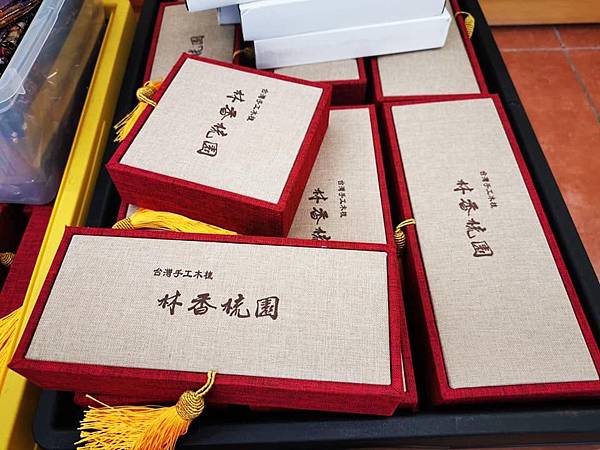 台灣手工木梳
林香梳園
台灣手工木梳
林香梳園
台灣手工木梳
林香梳
台灣手工木梳
林香梳園
園